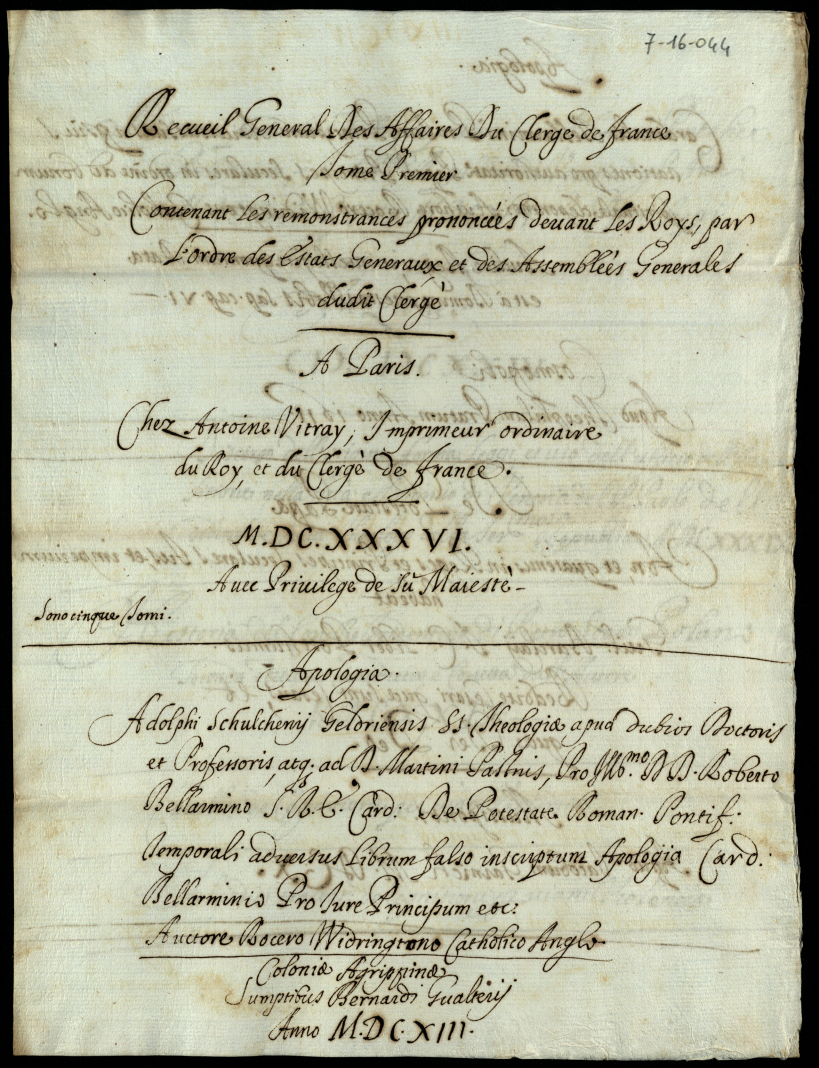 7-16-044
Recueil General Des Affaires Du Clerge de france
Tome Premier
Contenant Les remonstrances prononcées devant Les Roys, par
L'ordre des Estats Generaux et des Assemblées Generales
dudit Clergé
A Paris.
Chez Antoine Vitray, Imprimeur ordinaire
du Roy, et du Clergé de france.
M.DC.XXXVI.
Avec Privilege de sa Maiesté
Sono cinque Tomi.
Apologia.
Adolphi Schulchenij Geldriensis SS. Theologiæ apud Doctoris
et Professoris, atq. ad D. Martini Pastnis, Pro Illb.mo D D. Roberto
Bellarmino S. R. E. Card: De Potestate Roman. Pontif:
temporali adversus Librum falso inscriptum Apologia Card:
Bellarminis Pro Jure Principum etc:
Auctore Rocero Widringtono Catholico Anglo
Coloniæ Agrippinæ
Sumptibus Bernardi Gualterij
Anno M.DC.XIII.